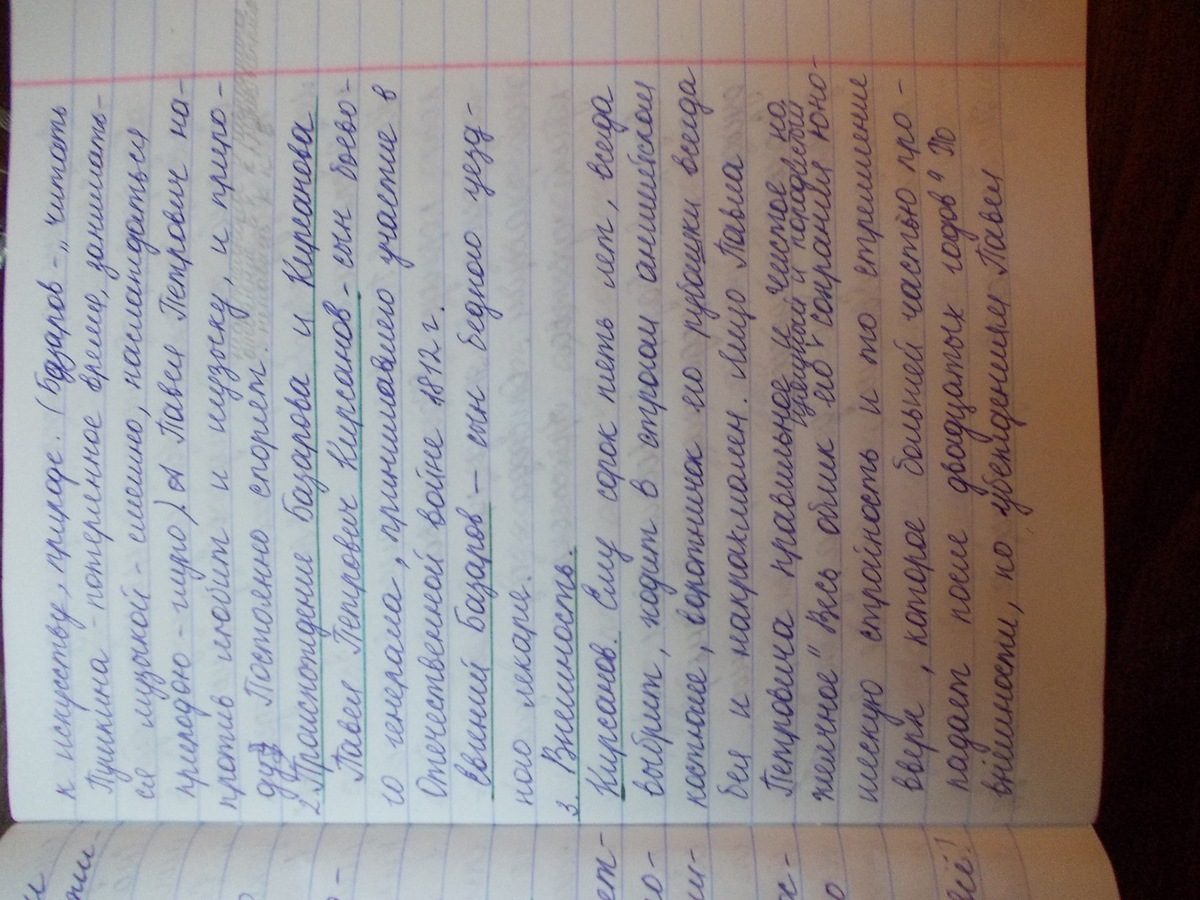 к искусству, природе. (Базаров - „читать
Пушкина - потерянное время, занимать-
ся музыкой - смешно, наслаждаться
природою - глупо). А Павел Петрович на-
против любит и музыку, и приро-
ду. Постоянно спорят.
2. Происхождение Базарова и Кирсанова
Павел Петрович Кирсанов - сын боево-
го генерала, принимавшего участие в
Отечественной войне 1812 г.
Евгений Базаров - сын бедного уезд-
ного лекаря.
3. Внешность.
Кирсанов. Ему сорок пять лет, всегда
выбрит, ходит в строгом английском
костюме, воротничок его рубашки всегда
бел и накрахмален. Лицо Павла
Петровича правильное и чистое, но
желчное" Весь облик его изящный и породистый сохранял юно-
шескую стройность и то стремление
вверх, которое большей частью про-
падает после двадцатых годов" По
внешности, по убеждениям Павел